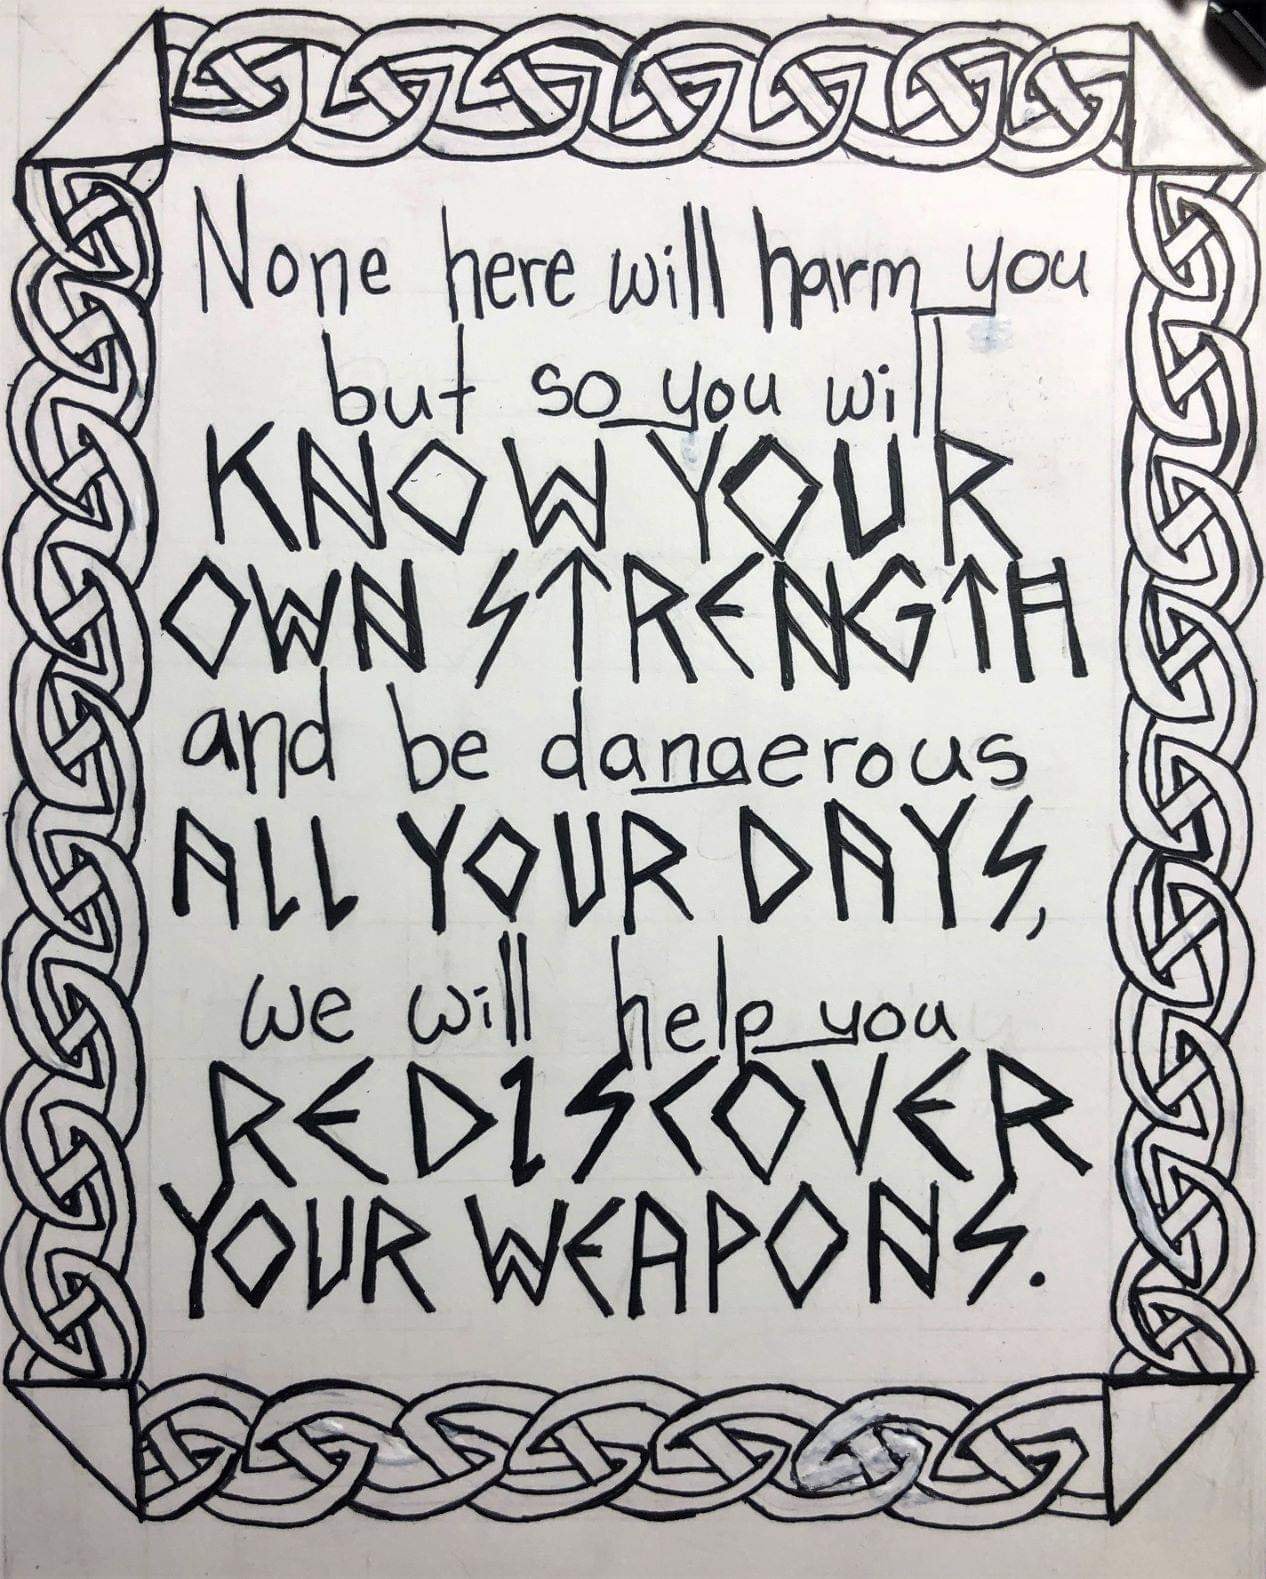 None here will harm you
but so you will
KNOW YOUR
OWN STRENGTH
and be dangerous
ALL YOUR DAYS,
we will help you
REDISCOVER
YOUR WEAPONS.